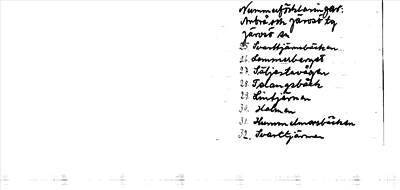 Nummerförklaringar.
Arbrå och Järvsö tg
Järvsö sn
25. Svarttjärnsbäcken
26. Lommerberget
27. Säljestavägen
28. Talangsbäck
29. Lintjärnen
30. Holmen
31. Hummelmorsbäcken
32. Svarttjärnen